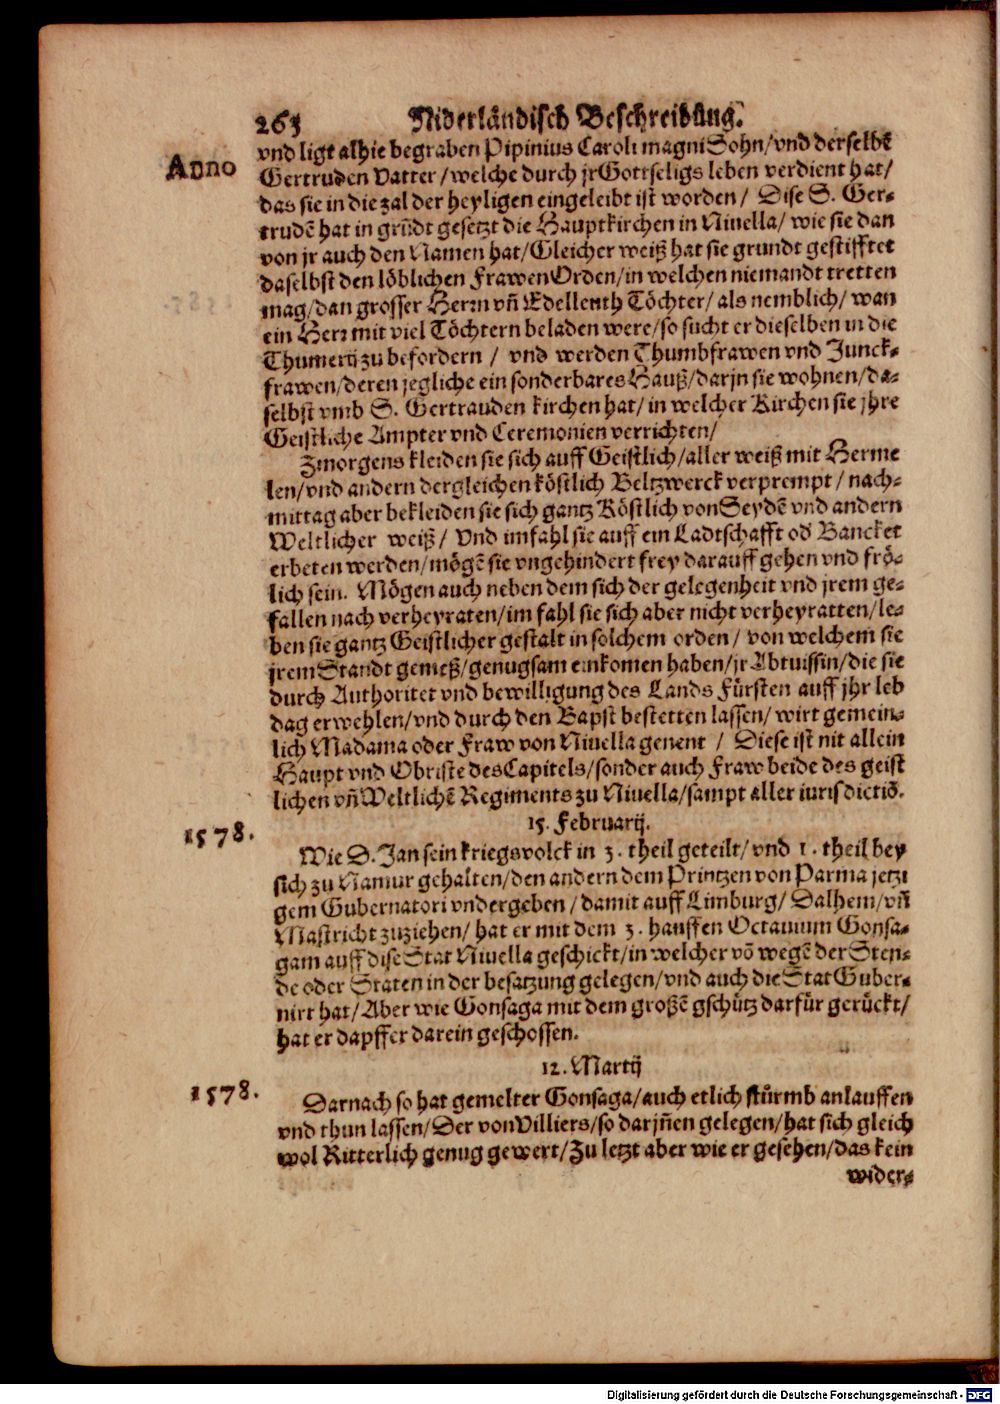 265 Niderländisch Beschreibung.
Anno
vnd ligt alhie begraben Pipinius Caroli magni Sohn/vnd derselbē
Gertruden Vatter/welche durch jr Gottseligs leben verdient hat/
das sie in die zal der heyligen eingeleibt ist worden/ Dise S. Ger-
trudē hat in grūdt gesetzt die Hauptkirchen in Niuella/ wie sie dan
von jr auch den Namen hat/Gleicher weiß hat sie grundt gestifftet
daselbst den löblichen FrawenOrden/in welchen niemandt tretten
mag/dan grosser Herrn vñ Edellenth Töchter/ als nemblich/ wan
ein Herr mit viel Töchtern beladen were/so sucht er dieselben in die
Thumerij zu befordern / vnd werden Thumbfrawen vnd Junck-
frawen/deren jegliche ein sonderbares Hauß/darjn sie wohnen/da-
selbst vmb S. Gertrauden kirchen hat/in welcher Kirchen sie jhre
Geistliche Ampter vnd Ceremonien verrichten/
Zmorgens kleiden sie sich auff Geistlich/aller weiß mit Herme
len/vnd andern dergleichen köstlich Beltzwerck verprempt/ nach-
mittag aber bekleiden sie sich gantz Köstlich von Seydē vnd andern
Weltlicher weiß/ Vnd imfahl sie auff ein Ladtschafft od Bancket
erbeten werden/mögē sie vngehindert frey darauff gehen vnd frö-
lich sein. Mögen auch neben dem sich der gelegenheit vnd jrem ge-
fallen nach verheyraten/im fahl sie sich aber nicht verheyratten/le-
ben sie gantz Geistlicher gestalt in solchem orden/ von welchem sie
jrem Standt gemeß/genugsam einkomen haben/jr Abtuissin/die sie
durch Authoritet vnd bewilligung des Lands Fürsten auff jhr leb
dag erwehlen/vnd durch den Bapst bestetten lassen/ wirt gemein-
lich Madama oder Fraw von Niuella genent / Diese ist nit allein
Haupt vnd Obriste des Capitels/sonder auch Fraw beide des geist
lichen vñ Weltlichē Regiments zu Niuella/sampt aller iurisdictiō.
15. Februarij.
1578.
Wie D. Jan sein kriegsvolck in 3. theil geteilt/vnd 1. theil bey
sich zu Namur gehalten/den andern dem Printzen von Parma jetzi
gem Gubernatori vndergeben/damit auff Limburg/ Dalhem/vñ
Mastricht zuziehen/ hat er mit dem 3. hauffen Octauium Gonsa-
gam auff dise Stat Niuella geschickt/in welcher vō wegē der Sten-
de oder Staten in der besatzung gelegen/vnd auch die Stat Guber-
nirt hat/Aber wie Gonsaga mit dem großē gschütz darfür gerückt/
hat er dapffer darein geschossen.
12. Martij
1578.
Darnach so hat gemelter Gonsaga/auch etlich stürmb anlauffen
vnd thun lassen/Der von Villiers/so darjñen gelegen/hat sich gleich
wol Ritterlich genug gewert/Zu letzt aber wie er gesehen/das kein
wider-
Digitalisierung gefördert durch die Deutsche Forschungsgemeinschaft - DFG